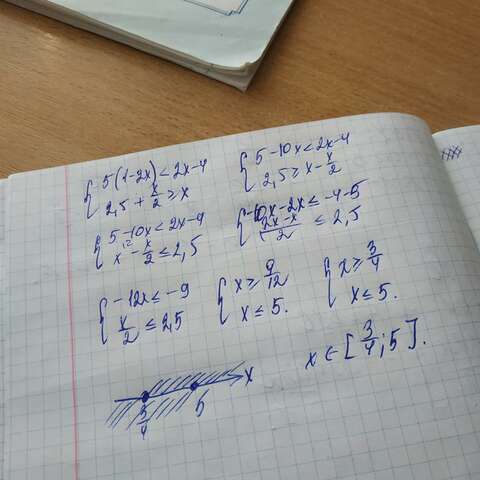 { 5(1-2x) < 2x-4
2,5 + x/2 ≥ x
{ 5-10x < 2x-4
2,5 ≥ x - x/2
{ 5-10x < 2x-4
x - x/2 ≤ 2,5
{ -10x-2x ≤ -4-5
(2x-x)/2 ≤ 2,5
{ -12x ≤ -9
x/2 ≤ 2,5
{ x ≥ 9/12
x ≤ 5.
{ x ≥ 3/4
x ≤ 5.
x
3/4 5
x ∈ [3/4; 5].